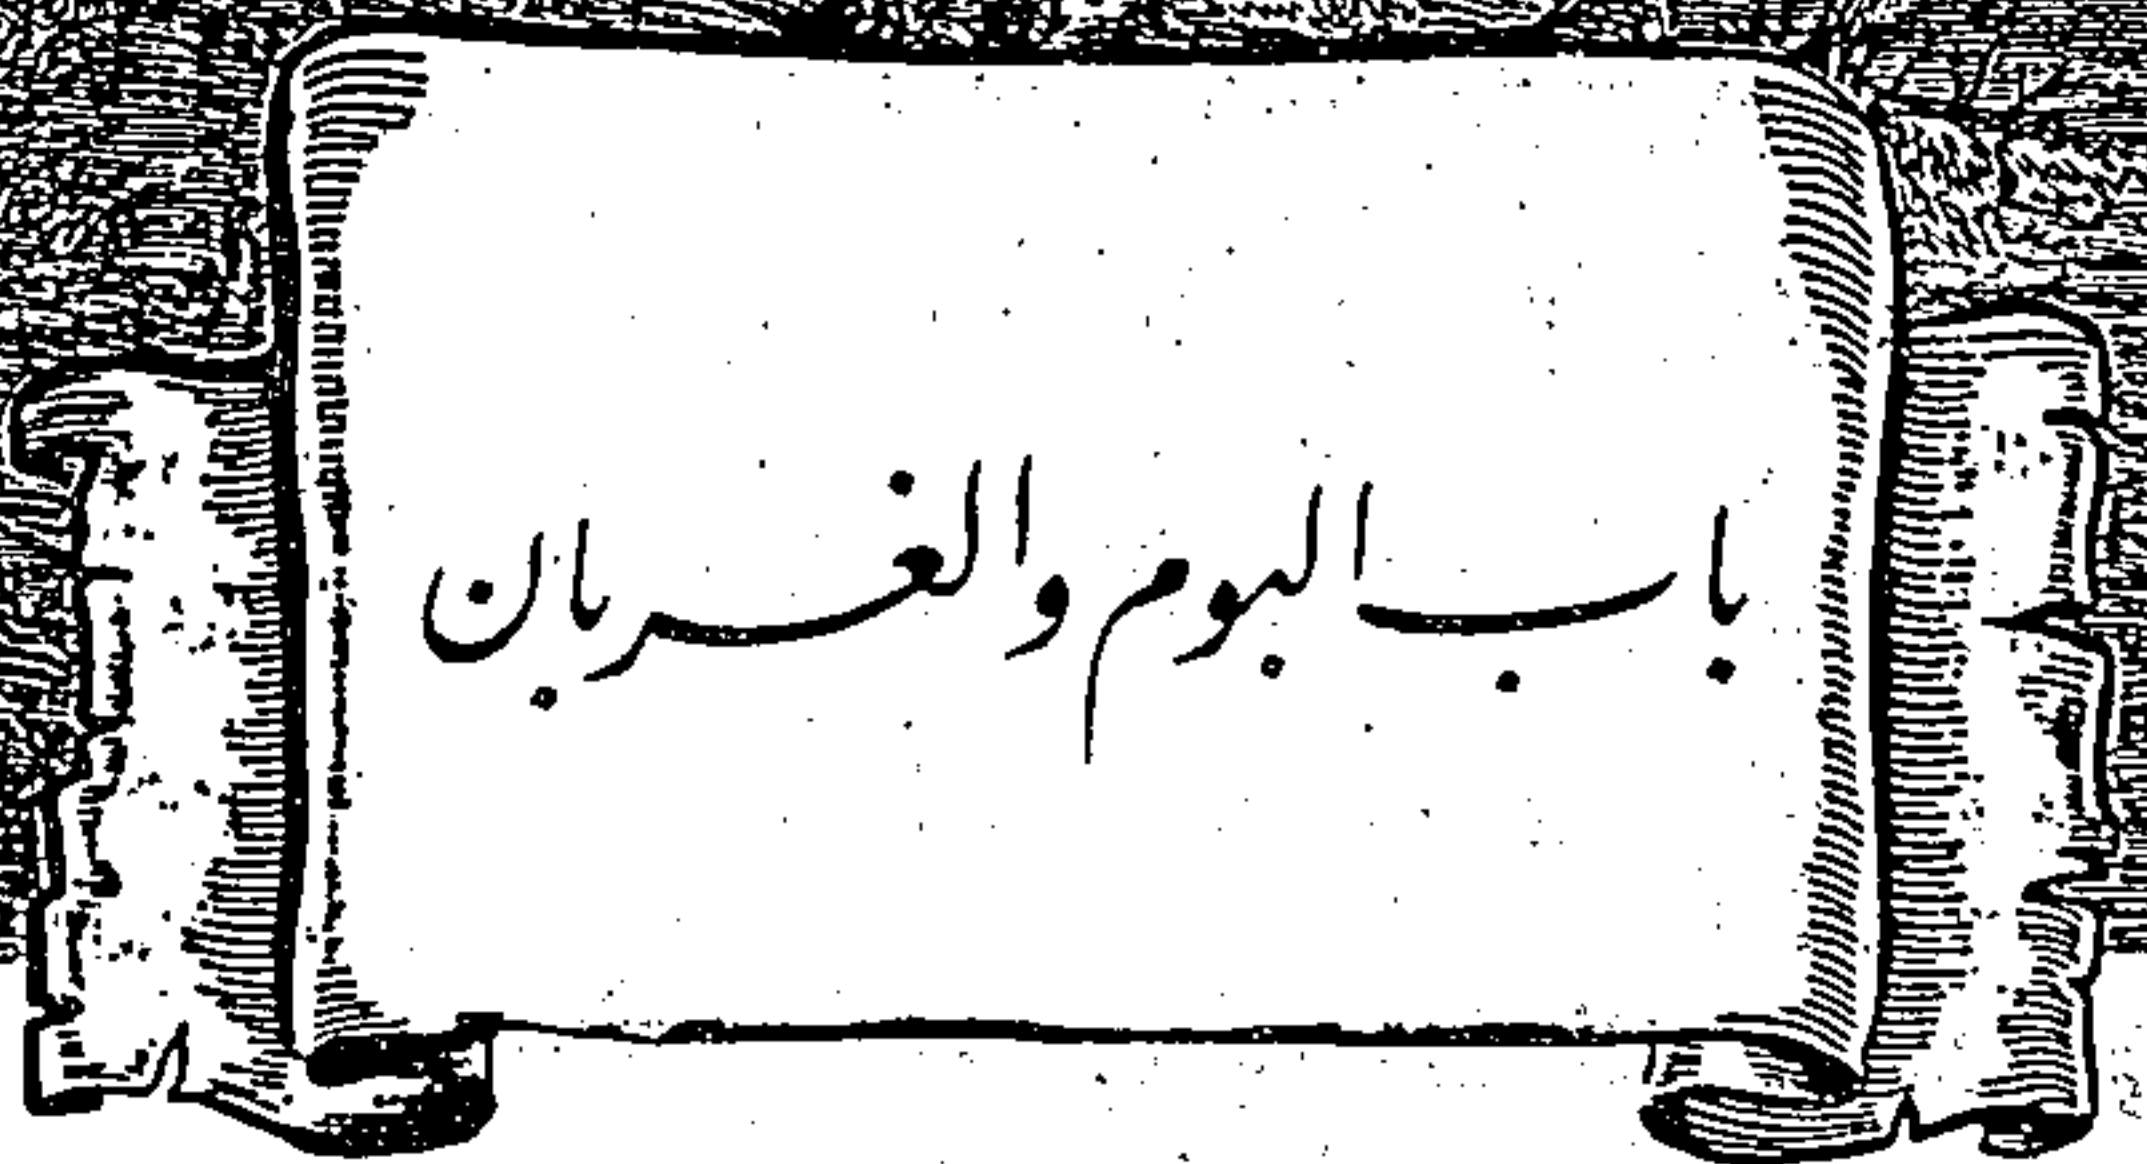 باب البوم والغربان